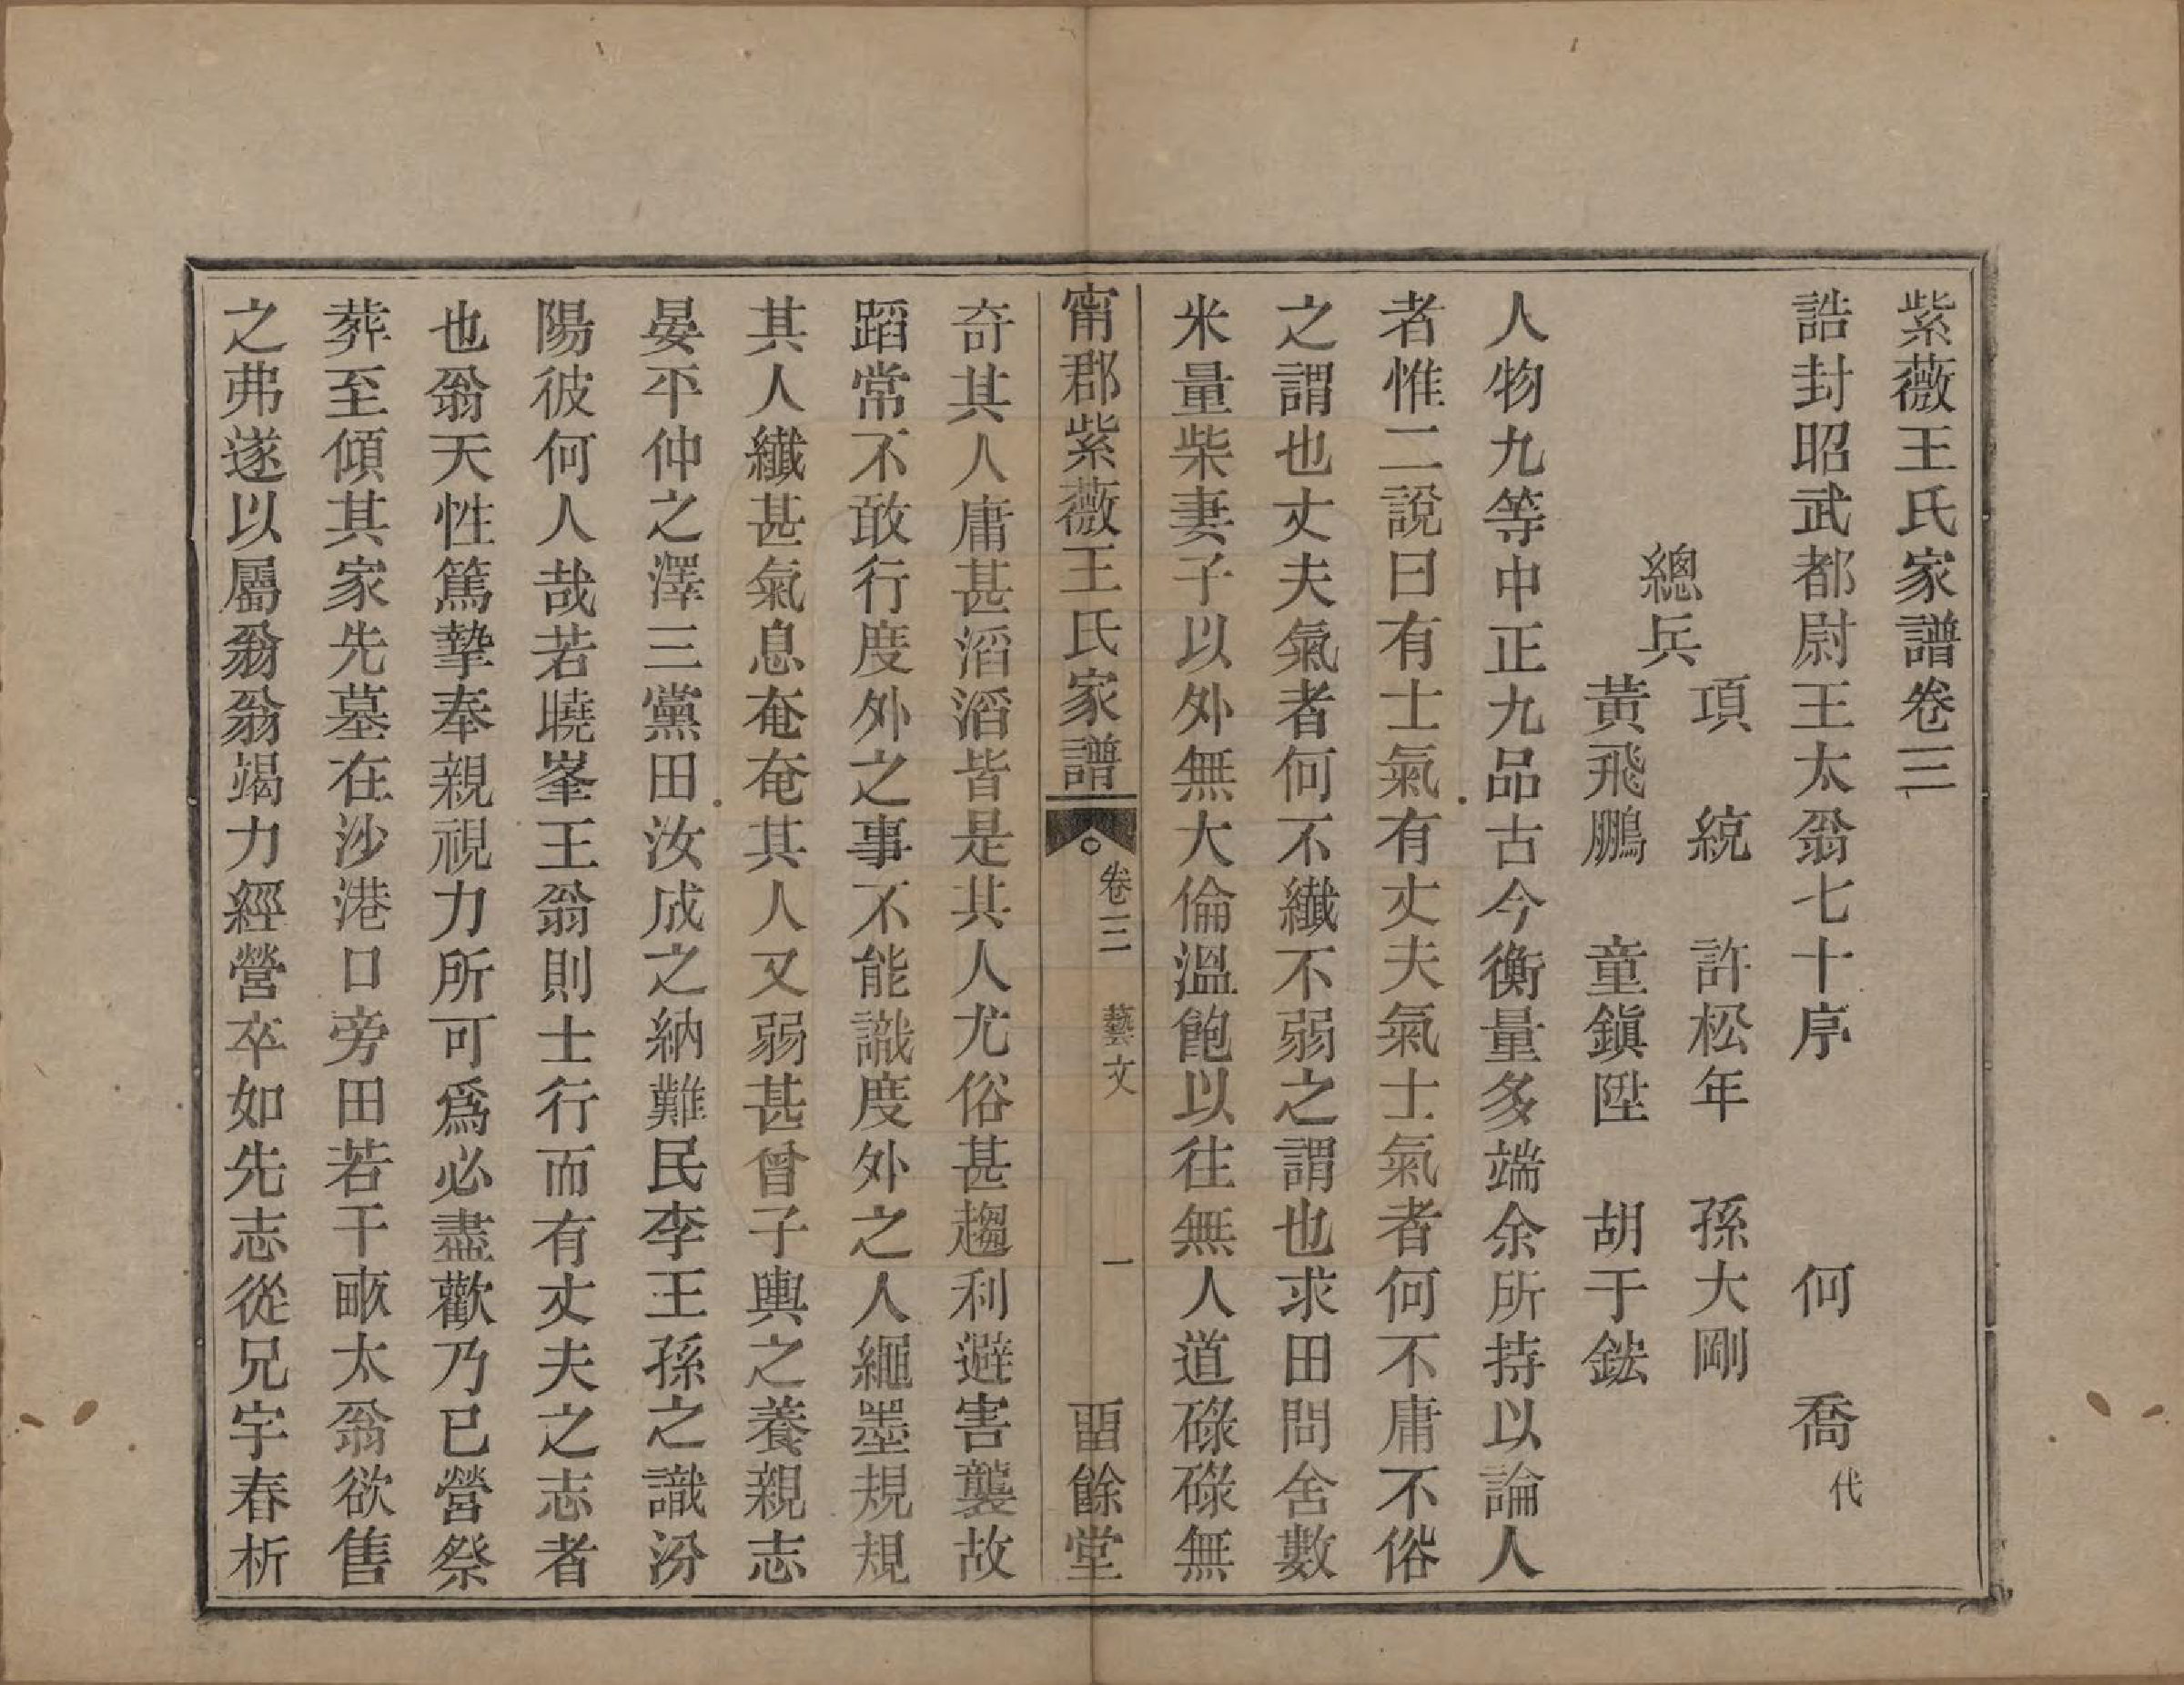 紫薇王氏家譜卷三
誥封昭武都尉王太翁七十序　何喬代
總兵
項統　許松年　孫大剛
黃飛鵬　童鎭陞　胡于鋐
人物九等中正九品古今衡量多端余所持以論人
者惟二說曰有士氣有丈夫氣士氣者何不庸不俗
之謂也丈夫氣者何不纖不弱之謂也求田問舍數
米量柴妻子以外無大倫溫飽以往無人道碌碌無
甯郡紫薇王氏家譜　卷三　藝文　一　畱餘堂
奇其人庸甚滔滔皆是其人尤俗甚趨利避害襲故
蹈常不敢行度外之事不能識度外之人繩墨規規
其人纖甚氣息奄奄其人又弱甚曾子輿之養親志
晏平仲之澤三黨田汝成之納難民李王孫之識汾
陽彼何人哉若曉峯王翁則士行而有丈夫之志者
也翁天性篤摯奉親視力所可爲必盡歡乃已營祭
葬至傾其家先墓在沙港口旁田若干畝太翁欲售
之弗遂以屬翁翁竭力經營卒如先志從兄宇春析